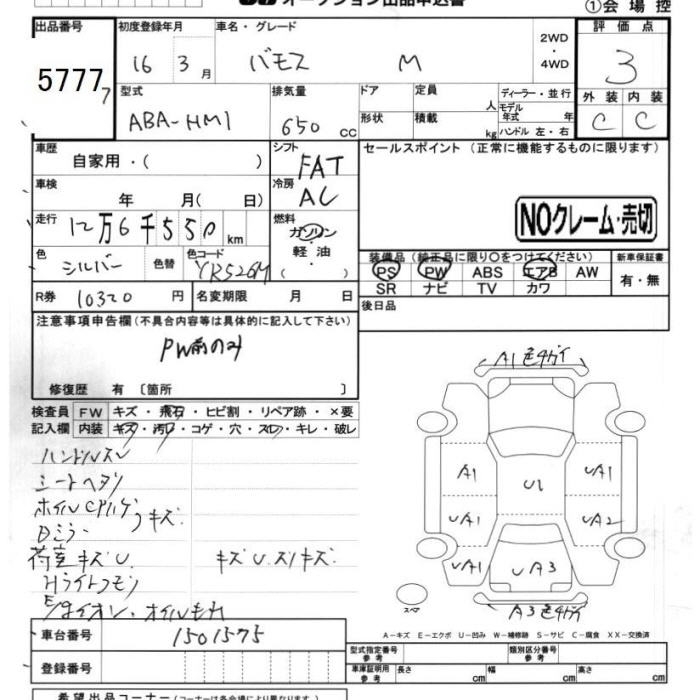 オークション出品申込書
①会場控
出品番号
初度登録年月
車名・グレード
評価点
5777
7
16 3月
バモス M
2WD
・
4WD
3
型式
排気量
ドア
定員
人
ディーラー・並行
外装 内装
ABA-HM1
650 CC
形状
積載
kg
モデル年式 年
ハンドル 左・右
C C
車歴
自家用・( )
シフト
FAT
セールスポイント(正常に機能するものに限ります)
車検
年 月( 日)
冷房
AC
NOクレーム・売切
走行
12万6千550 km
燃料
ガソリン
・
軽油
・
( )
色
シルバー
色替
色コード
YR526M
装備品(純正品に限り○をつけてください)
新車保証書
PS PW ABS エアB AW
SR ナビ TV カワ
有・無
R券 10320 円
名変期限 月 日
後日品
注意事項申告欄(不具合内容等は具体的に記入して下さい)
PW前のみ
修復歴 有 〔箇所 〕
検査員 FW キズ・飛石・ヒビ割・リペア跡・×要
記入欄 内装 キズ・汚れ・コゲ・穴・スレ・キレ・破レ
ハンドルスレ
シートヘタリ
キズ
Dミラー
荷室キズU. キズU.スリキズ.
Hライトクモリ
オイルもれ
A1色チガイ
A1 U1 UA1
UA1 UA2
UA1 UA3 UA1
スペア
A3色チガイ
A-キズ E-エクボ U-凹み W-補修跡 S-サビ C-腐食 XX-交換済
車台番号 1501575
型式指定番号
参考
類別区分番号
参考
登録番号
車庫証明用
参考
長さ cm 幅 cm 高さ cm
希望出品コーナー(コーナーは各会場により異なります)